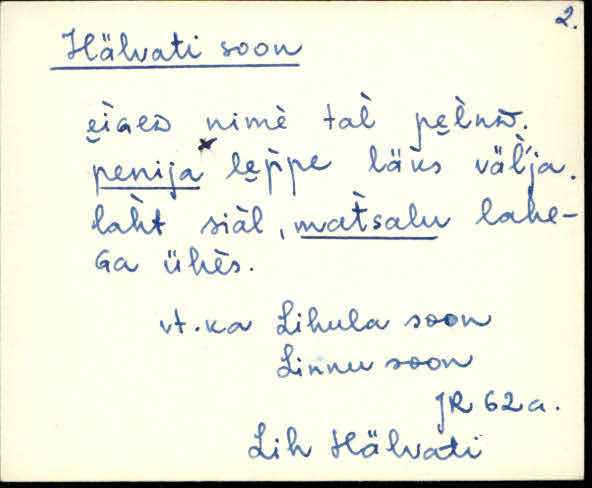 2.
Hälvati soon
e̮iGes nimè tal̀ pe̮lnd.
penija le̮p̀pe läks väl̀ja.
laht̀ siàl, mat̀salu lahe-
Ga ühès.
vt. ka Lihula soon
Linnu soon
JR 62a.
Lih Hälvati